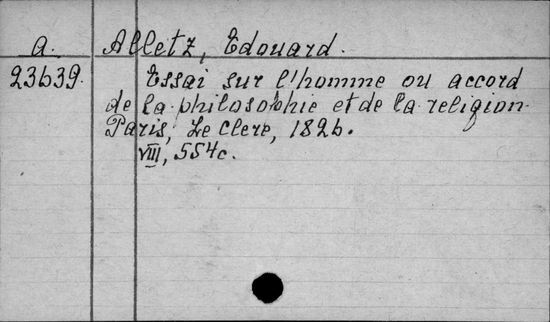 a. Alletz, Edouard.
23639. Essai sur l'homme ou accord
de la philosophie et de la religion.
Paris, Le Clere, 1826.
VIII, 554c.